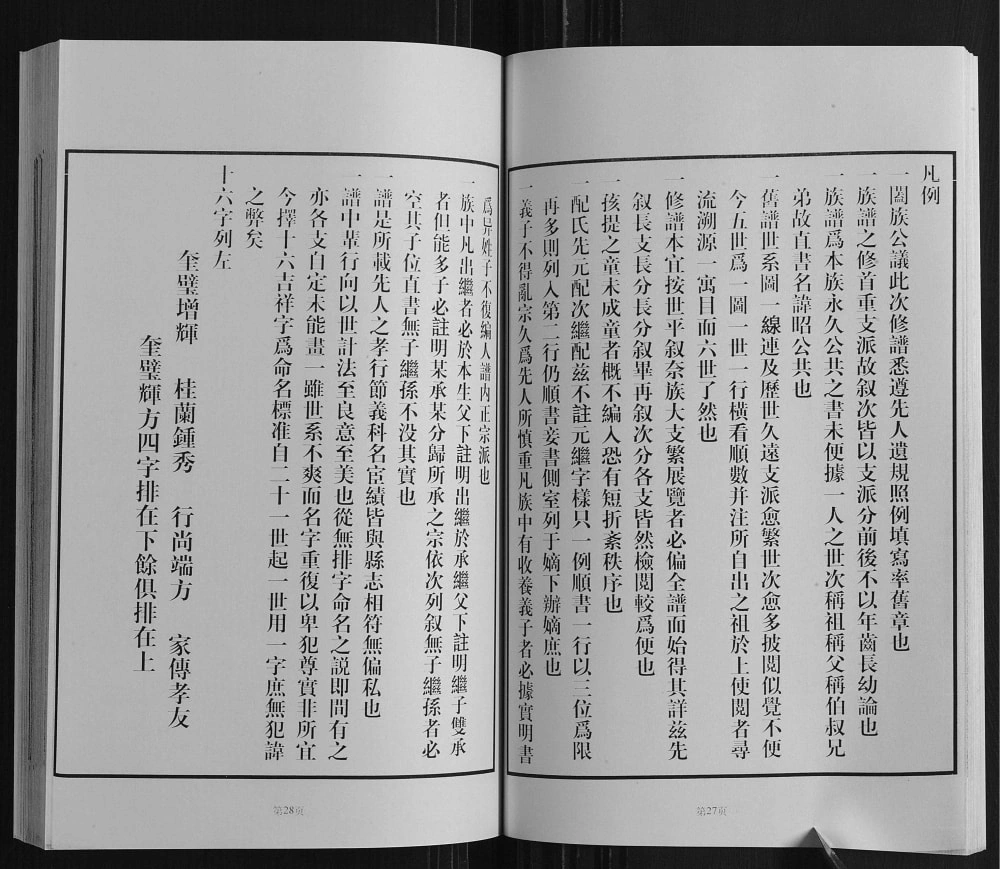 凡例
一闔族公議此次修譜悉遵先人遺規照例填寫率舊章也
一族譜之修首重支派故叙次皆以支派分前後不以年齒長幼論也
一族譜爲本族永久公共之書未便據一人之世次稱祖稱父稱伯叔兄
弟故直書名諱昭公共也
一舊譜世系圖一線連及歷世久遠支派愈繁世次愈多披閲似覺不便
今五世爲一圖一世一行橫看順數并注所自出之祖於上使閲者尋
流溯源一寓目而六世了然也
一修譜本宜按世平叙奈族大支繁展覽者必偏全譜面始得其詳兹先
叙長支長分長分叙畢再叙次分各支皆然檢閲較爲便也
一孩提之童未成童者概不編入恐有短折紊秩序也
一配氏先元配次繼配兹不註元繼字樣只一例順書一行以三位爲限
再多則列入第二行仍順書妾書側室列于嫡下辦嫡庶也
一義子不得亂宗久爲先人所慎重凡族中有收養義子者必據實明書
第27页
爲异姓子不復編入譜内正宗派也
一族中凡出繼者必於本生父下註明出繼於承繼父下註明繼子雙承
者但能多子必註明某承某分歸所承之宗依次列叙無子繼孫者必
空其子位直書無子繼孫不没其實也
一譜是所載先人之孝行節義科名宦績皆與縣志相符無偏私也
一譜中輩行向以世計法至良意至美也從無排字命名之説即間有之
亦各支自定未能畫一雖世系不爽而名字重復以卑犯尊實非所宜
今擇十六吉祥字爲命名標准自二十一世起一世用一字庶無犯諱
之弊矣
十六字列左
奎璧增輝 桂蘭鍾秀 行尚端方 家傳孝友
奎璧輝方四字排在下餘俱排在上
第28页